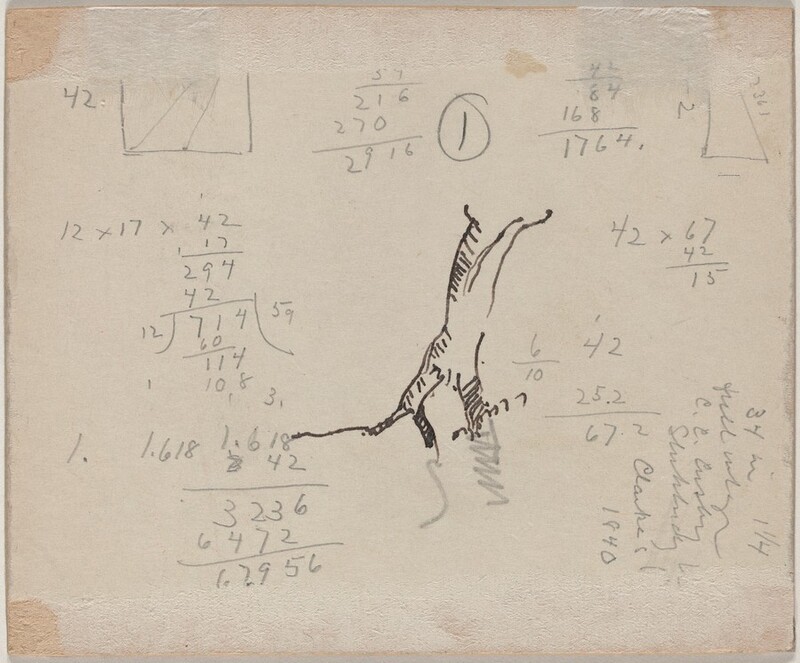 42.
57
216
270
2916
1
42
84
168
1764.
2
12 x 17 x 42
17
294
42
12 ) 714 ( 59
60
114
108
3.
42 x 67
42
15
6
10
42
25.2
67.2
1. 1.618 1.618
42
3236
6472
67956
34 in 1 1/4
C. C.
Clarke's
1840